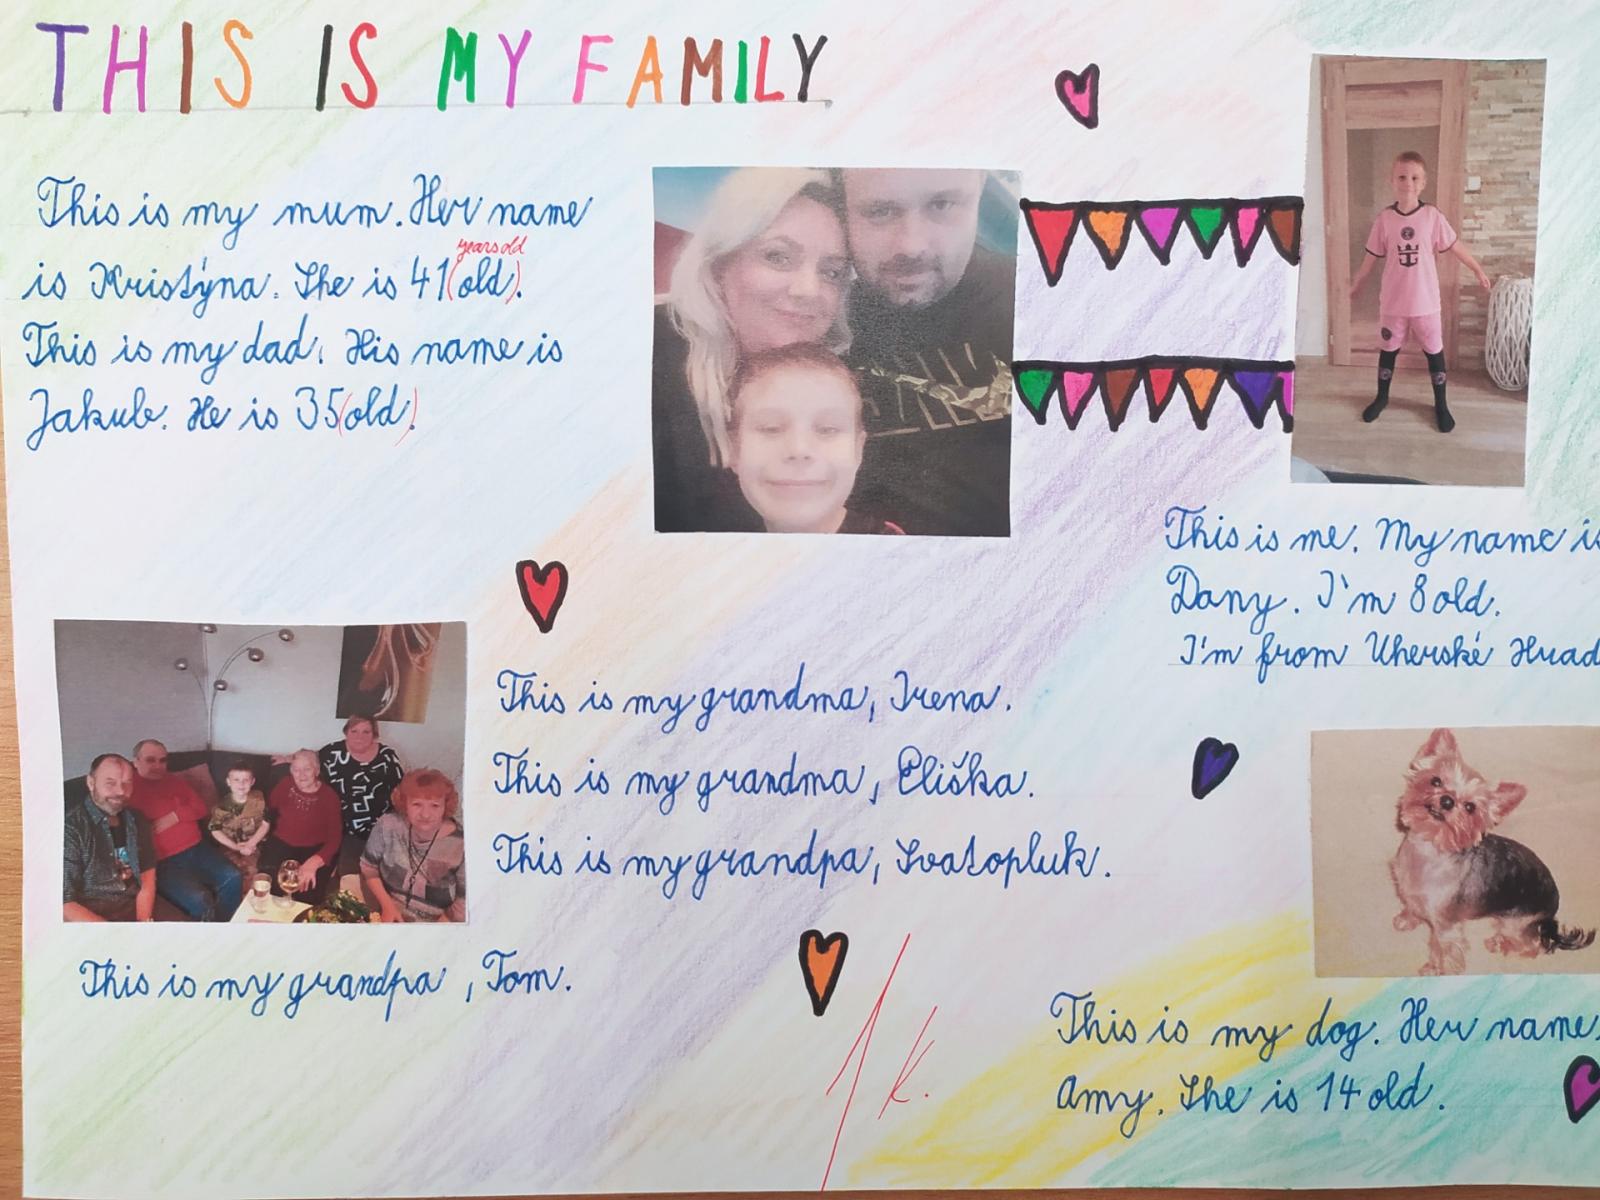 THIS IS MY FAMILY
This is my mum. Her name
years old
is Kristýna. She is 41(old).
This is my dad. His name is
Jakub. He is 35(old)
This is me. My name is
Dany. I'm 8 old.
I'm from Uherské Hrad
This is my grandma, Irena.
This is my grandma, Eliška.
This is my grandpa, Svatopluk.
This is my grandpa, Tom.
1 k.
This is my dog. Her name
Amy. She is 14 old.